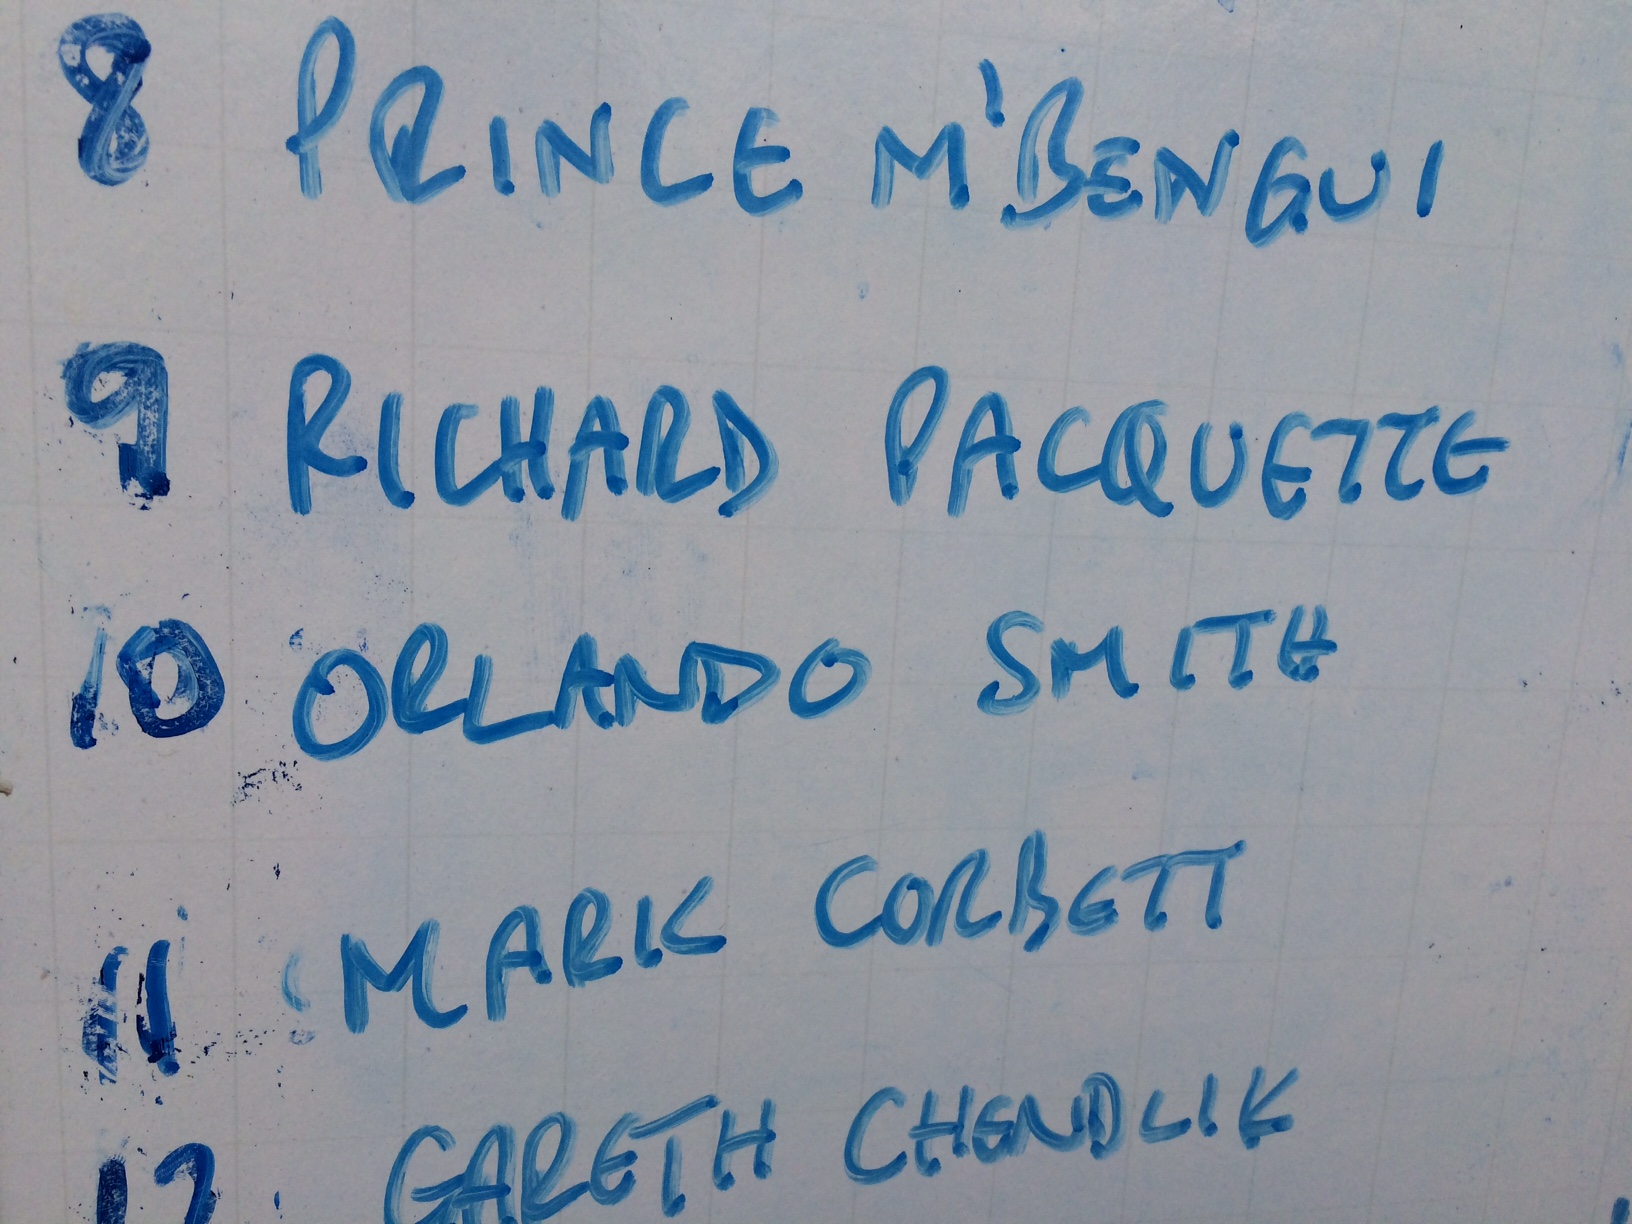 8 PRINCE M'BENGUI
9 RICHARD PACQUETTE
10 ORLANDO SMITH
11 MARK CORBETT
12 GARETH CHENDLIK